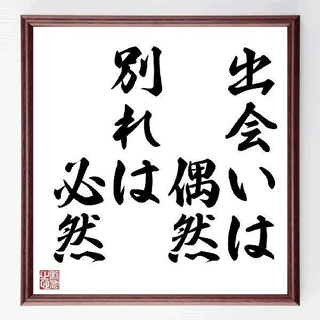 出会いは
偶然
別れは
必然